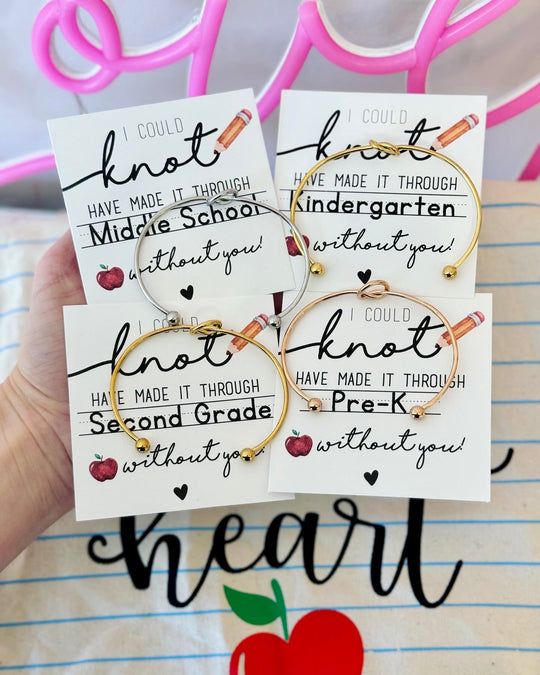 I COULD
knot
HAVE MADE IT THROUGH
Middle School
without you!
I COULD
knot
HAVE MADE IT THROUGH
Kindergarten
without you!
I COULD
knot
HAVE MADE IT THROUGH
Second Grade
without you!
I COULD
knot
HAVE MADE IT THROUGH
Pre-K
without you!
heart